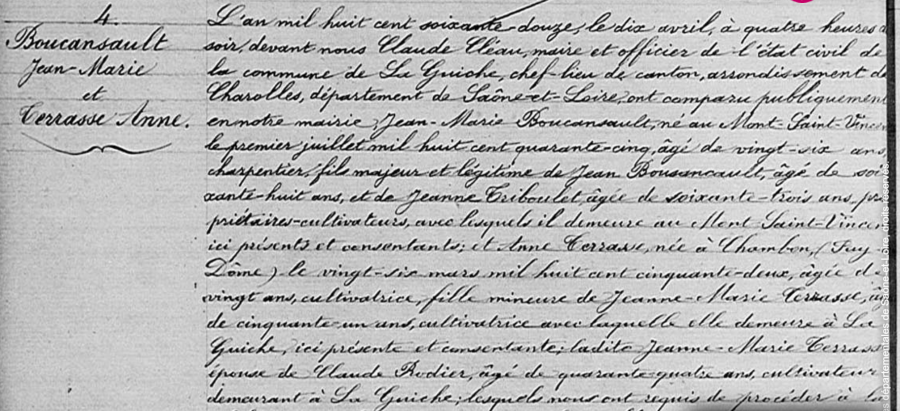 4.
Boucansault
Jean-Marie
et
Terrasse Anne.
L'an mil huit cent soixante-douze, le dix avril, à quatre heures d
soir, devant nous Claude Cléau, maire et officier de l'état civil de
la commune de La Guiche, chef-lieu de canton, arrondissement de
Charolles, département de Saône-et-Loire, ont comparu publiquement
en notre mairie, Jean-Marie Boucansault, né au Mont-Saint-Vincen
le premier juillet mil huit cent quarante-cinq, âgé de vingt-six ans,
charpentier, fils majeur et légitime de Jean Bousancault, âgé de soi
xante-huit ans, et de Jeanne Triboulet, âgée de soixante-trois ans, pro
priétaires-cultivateurs, avec lesquels il demeure au Mont-Saint-Vincen
ici présents et consentants; et Anne Terrasse, née à Chambon, (Puy-
Dôme) le vingt-six mars mil huit cent cinquante-deux, âgée de
vingt ans, cultivatrice, fille mineure de Jeanne-Marie Terrasse, âg
de cinquante-un ans, cultivatrice avec laquelle elle demeure à La
Guiche, ici présente et consentante; ladite Jeanne-Marie Terrasse
épouse de Claude Rodier, âgé de quarante-quatre ans, cultivateur
demeurant à La Guiche; lesquels nous ont requis de procéder à la
départementales de Saône-et-Loire, droits réservés